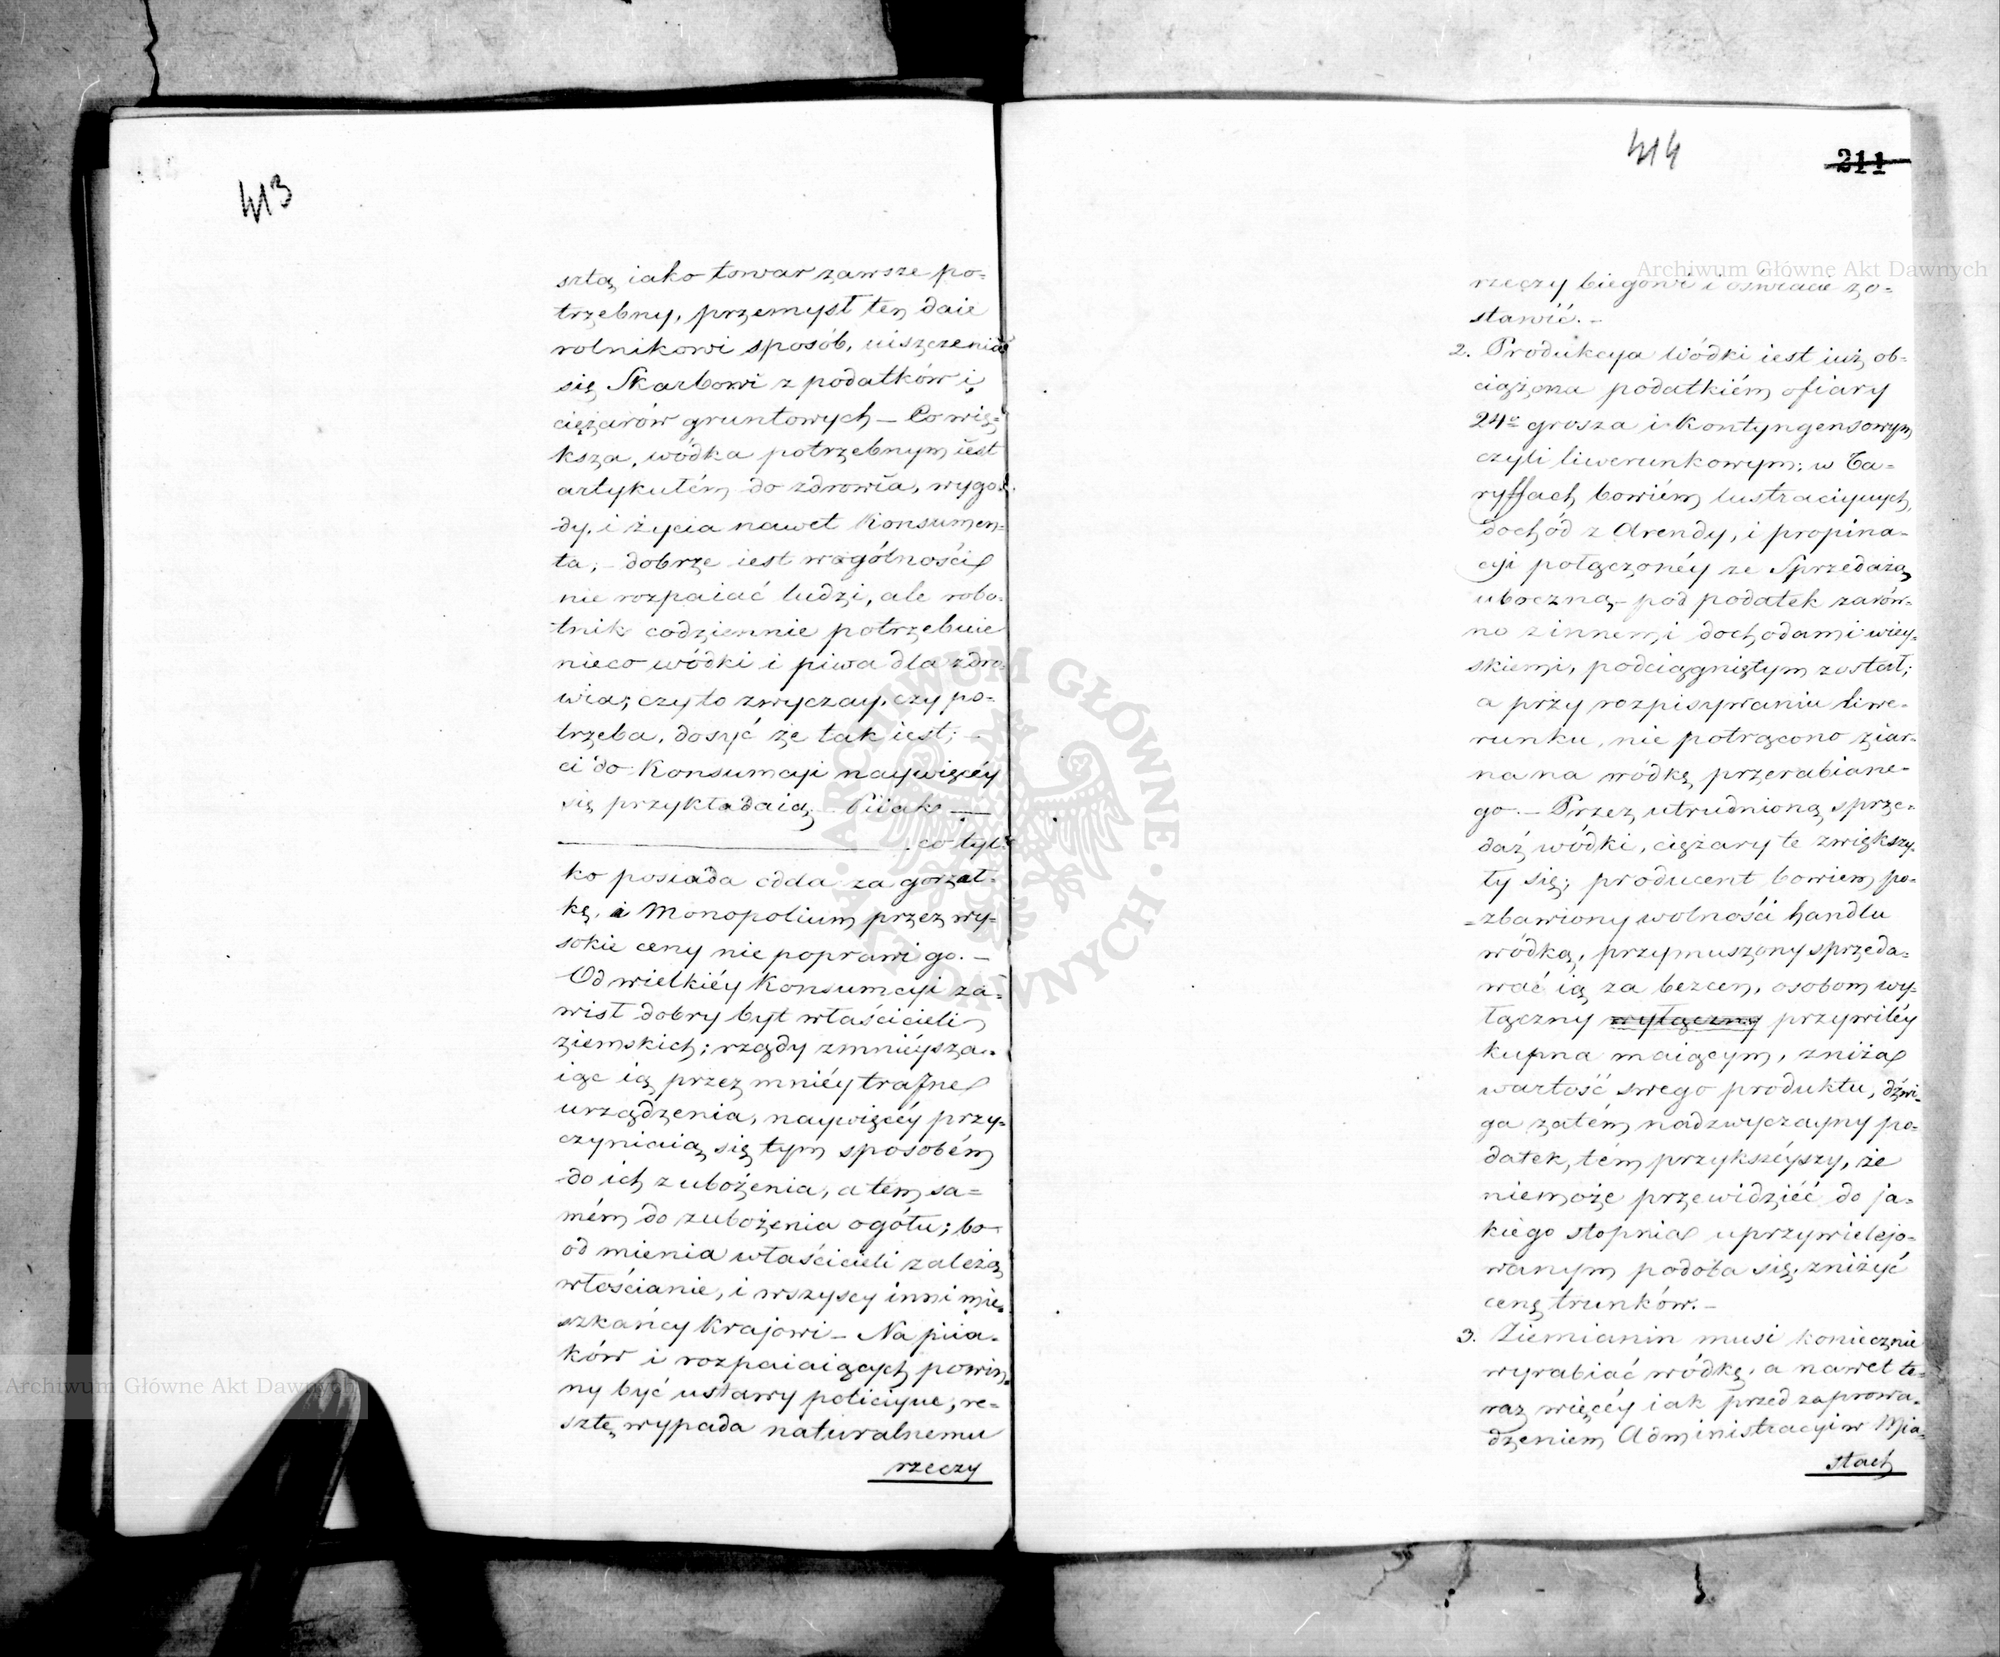 413
sztą iako towar zawsze po=
trzebny, przemysł ten daie
rolnikowi sposób, uiszczenia
się Skarbowi z podatków i
ciężarów gruntowych — Co wię=
ksza, wódka potrzebnym iest
artykułém do zdrowia, wygo=
dy, i życia nawet Konsumen=
ta; – dobrze iest wogólności
nie rozpaiać ludzi, ale robo=
tnik codziennie potrzebuie
nieco wódki i piwa dla zdro=
wia; czy to zwyczay, czy po=
trzeba, dosyć że tak iest; –
ci do Konsumcyi naywięcéy
się przykładaią – Piiak —
co tyl=
ko posiada odda za gorzał=
kę, i Monopolium przez wy=
sokie ceny nie poprawi go. –
Od wielkiéy Konsumcyi za=
wisł dobry byt właścicieli
ziemskich; rządy zmniéysza=
iąc ią przez mniéy trafne
urządzenia, naywięcéy przy=
czyniaią się tym sposobém
do ich zubożenia, a tem sa=
mém do zubożenia ogółu; bo
od mienia właścicieli zależą
włościanie, i wszyscy inni mie=
szkańcy Krajowi – Na piia=
ków i rozpaiaiących powin=
ny być ustawy policiyne, re=
sztę wypada naturalnemu
rzeczy
414
211
rzeczy biegowi i oświacie zo=
stawić. –
2. Produkcya wódki iest iuż ob=
ciążona podatkiém ofiary
24o grosza i Kontyngensowym
czyli liwerunkowym; w Ta=
ryffach bowiém lustraciynych,
dochód z Arendy, i propina=
cyi połączonéy ze Sprzedażą
uboczną – pod podatek zarów=
no z innemi dochodami wiey=
skiemi, podciągniętym został;
a przy rozpisywaniu liwe=
runku, nie potrącono ziar=
na na wódkę przerabiane=
go. – Przez utrudnioną sprze=
daż wódki, ciężary te zwiększy=
ły się; producent bowiem po=
=zbawiony wolności handlu
wódką, przymuszony sprzeda=
wać ią za bezcen, osobom wy=
łączny wyłączny przywiléy
kupna maiącym, zniża
wartość swego produktu, dźwi=
ga zatém nadzwyczayny po=
datek, tém przykszéyszy, że
niemoże przewidziéć do ja=
kiego stopnia uprzywilejo=
wanym podoba się zniżyć
cenę trunków. –
3. Ziemianin musi koniecznie
wyrabiać wódkę, a nawet te=
raz więcéy iak przed zaprowa=
dzeniem Administracyi w Mia=
stach
Archiwum Główne Akt Dawnych
Archiwum Główne Akt Dawnych
ARCHIWUM GŁÓWNE AKT DAWNYCH